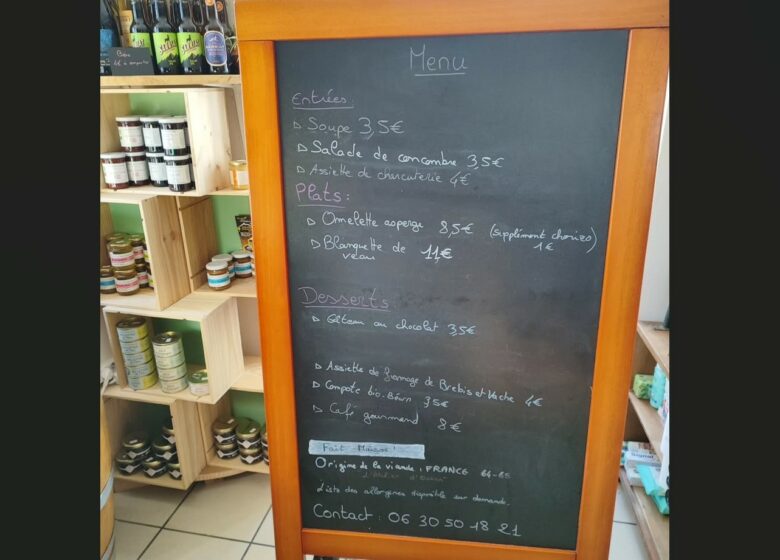 Menu
Entrées:
Soupe 3,5€
Salade de concombre 3,5€
Assiette de charcuterie 4€
Plats:
Omelette asperge 8,5€ (supplément chorizo)
1€
Blanquette de 11€
veau
Desserts
Gâteau au chocolat 3,5€
Assiette de fromage de Brebis et Vache 4€
Compote bio. Béarn 3,5€
Café gourmand 8€
Fait Maison
Origine de la viande: FRANCE
Liste des allergènes disponible sur demande.
Contact: 06 30 50 18 21